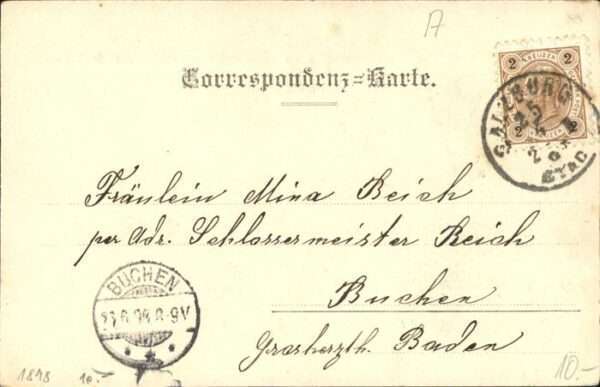 A
Correspondenz=Karte.
2 KREUZER 2
2 KREUZER 2
SALZBURG
25
STADT
Fräulein Mina Beich
per Adr. Schlossermeister Reich
Buchen
Grosherzth. Baden
BUCHEN
8-9V
1898 10.-
10.-